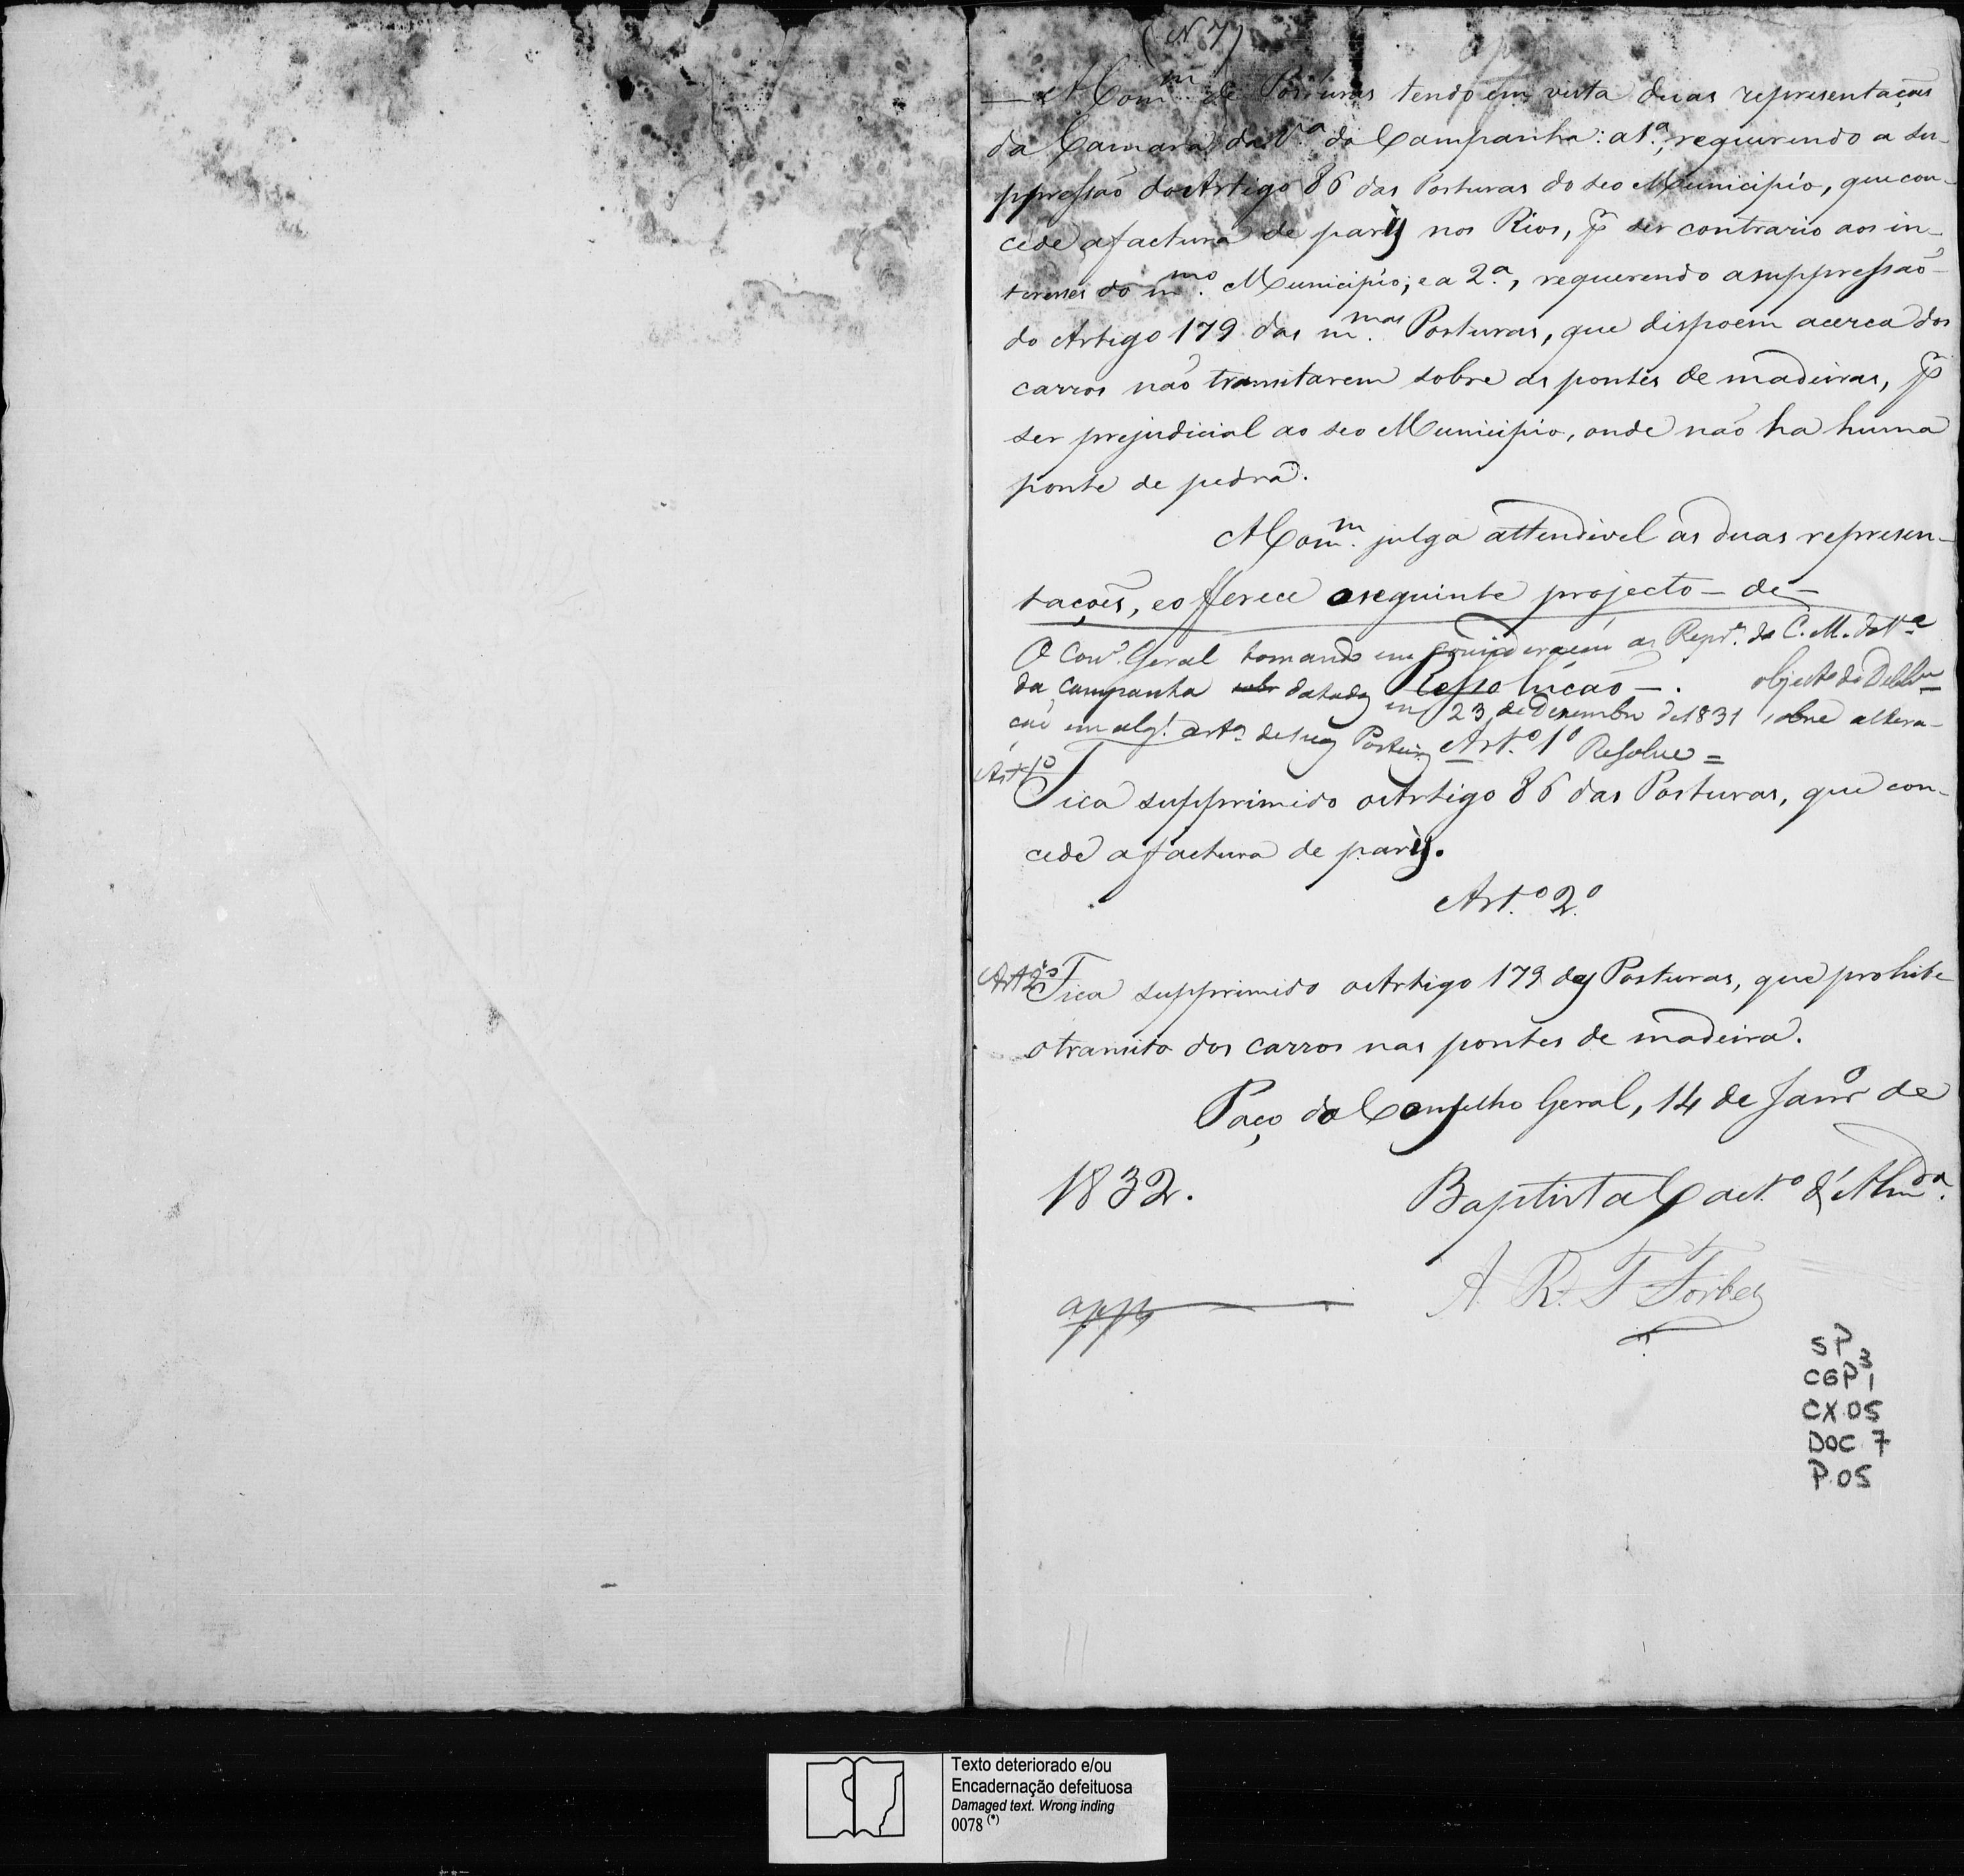 (N 7)
A Com.m de Posturas tendo em vista duas representações
da Camara da V.a da Campanha: a 1.a, requerendo a su-
ppressaõ do Artigo 86 das Posturas do seo Municipio, que con-
cede a factura de paris nos Rios, p ser contrario aos in-
teresses do m.mo Municipio; e a 2.a, requerendo a suppressaõ
do Artigo 179 das m.mas Posturas, que dispoem acerca dos
carros naõ transitarem sobre as pontes de madeiras, p
ser prejudicial ao seo Municipio, onde naõ ha huma
ponte de pedra.
A Com.m julga attendivel as duas represen-
tações, e offerece o seguinte projecto – de –
O Con.o Geral tomando em consideraçaõ as Repr.s da C. M. da V.a
da Campanha datadas Resolucaõ –. objecto de
em 23 de Dezembro de 1831 sobre altera-
caõ em alg.s art.os de suas Posturas Art.o 1o Resolve =
Art 1o Fica supprimido o Artigo 86 das Posturas, que con-
cede a factura de paris.
Art.o 2.o
Art 2o Fica supprimido o Artigo 179 das Posturas, que prohibe
o transito dos carros nas pontes de madeira.
Paço do Conselho Geral, 14 de Janro de
1832. Baptista Caet.o d'Almda.
app A. R. T Forbes
SP
CGP 3
1
CX.05
DOC.7
P.05
Texto deteriorado e/ou
Encadernação defeituosa
Damaged text. Wrong inding
0078 (*)